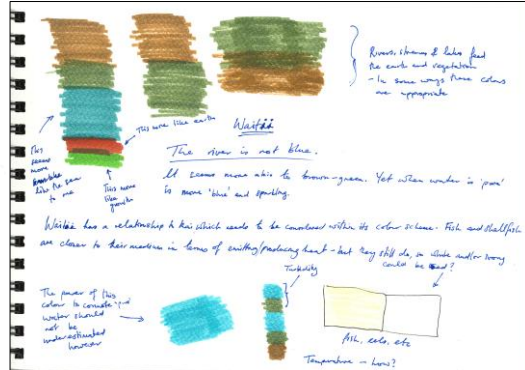 Rivers, streams & lakes feed
the earth and vegetation
- In some ways these colours
are appropriate
This more like earth
This
seems
more
like the sea
to me
This more
like
growth
Waitāi
The river is not blue.
It seems more akin to brown-green. Yet when water is 'pure'
is more 'blue' and sparkling.
has a relationship to which needs to be considered within its colour scheme. Fish and shellfish
are closer to their in terms of emitting/producing heat - but they still do, so white and/or
could be used?
Turbidity
The power of this
colour to connote
water should
not be
underestimated
however
fish, eels, etc
Temperature - how?